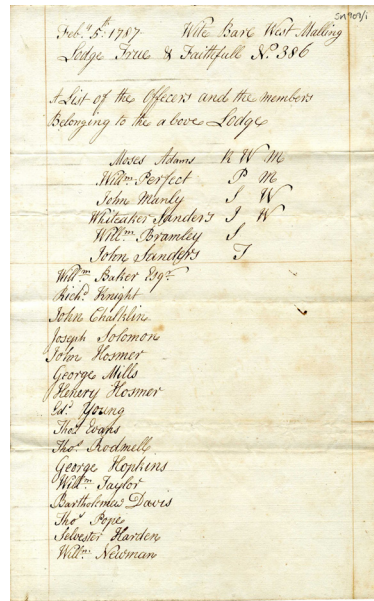 SN 903/1
Feby. 5th. 1787 Wite Bare West Malling
Lodge True & Faithfull No. 386
A List of the Officers and the members
Belonging to the above Lodge
Moses Adams R W M
Willm. Perfect P M
John Manly S W
Whiteaker Sanders J W
Willm. Bramley S
John Sanders T
Willm. Baker Esqr.
Richd. Knight
John Chalklin
Joseph Solomon
John Hosmer
George Mills
Henery Hosmer
Edd. Young
Thos. Evans
Thos. Rodmell
George Hopkins
Willm. Taylor
Bartholemew Davis
Thos. Pope
Selvester Harden
Willm. Newman